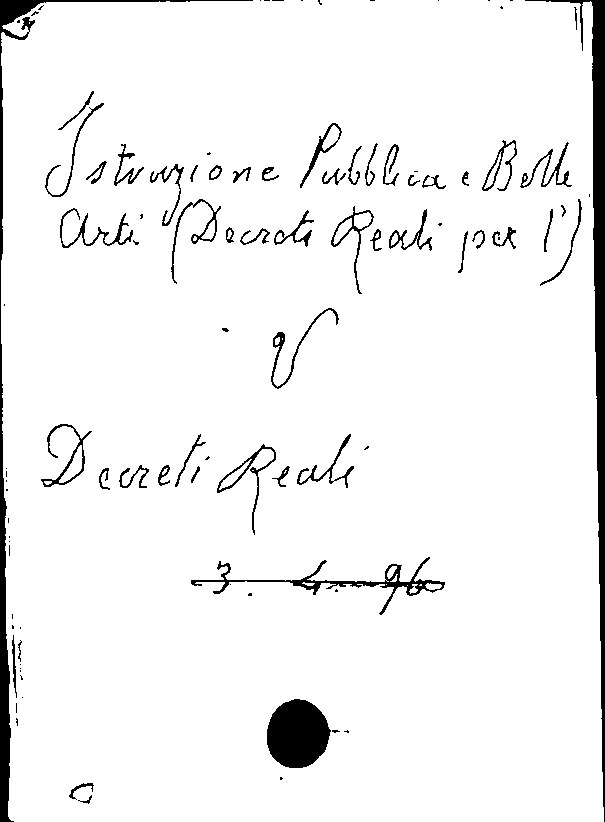 Istruzione Pubblica e Belle
Arti (Decreti Reali per l')
V
Decreti Reali
3. 4. 96